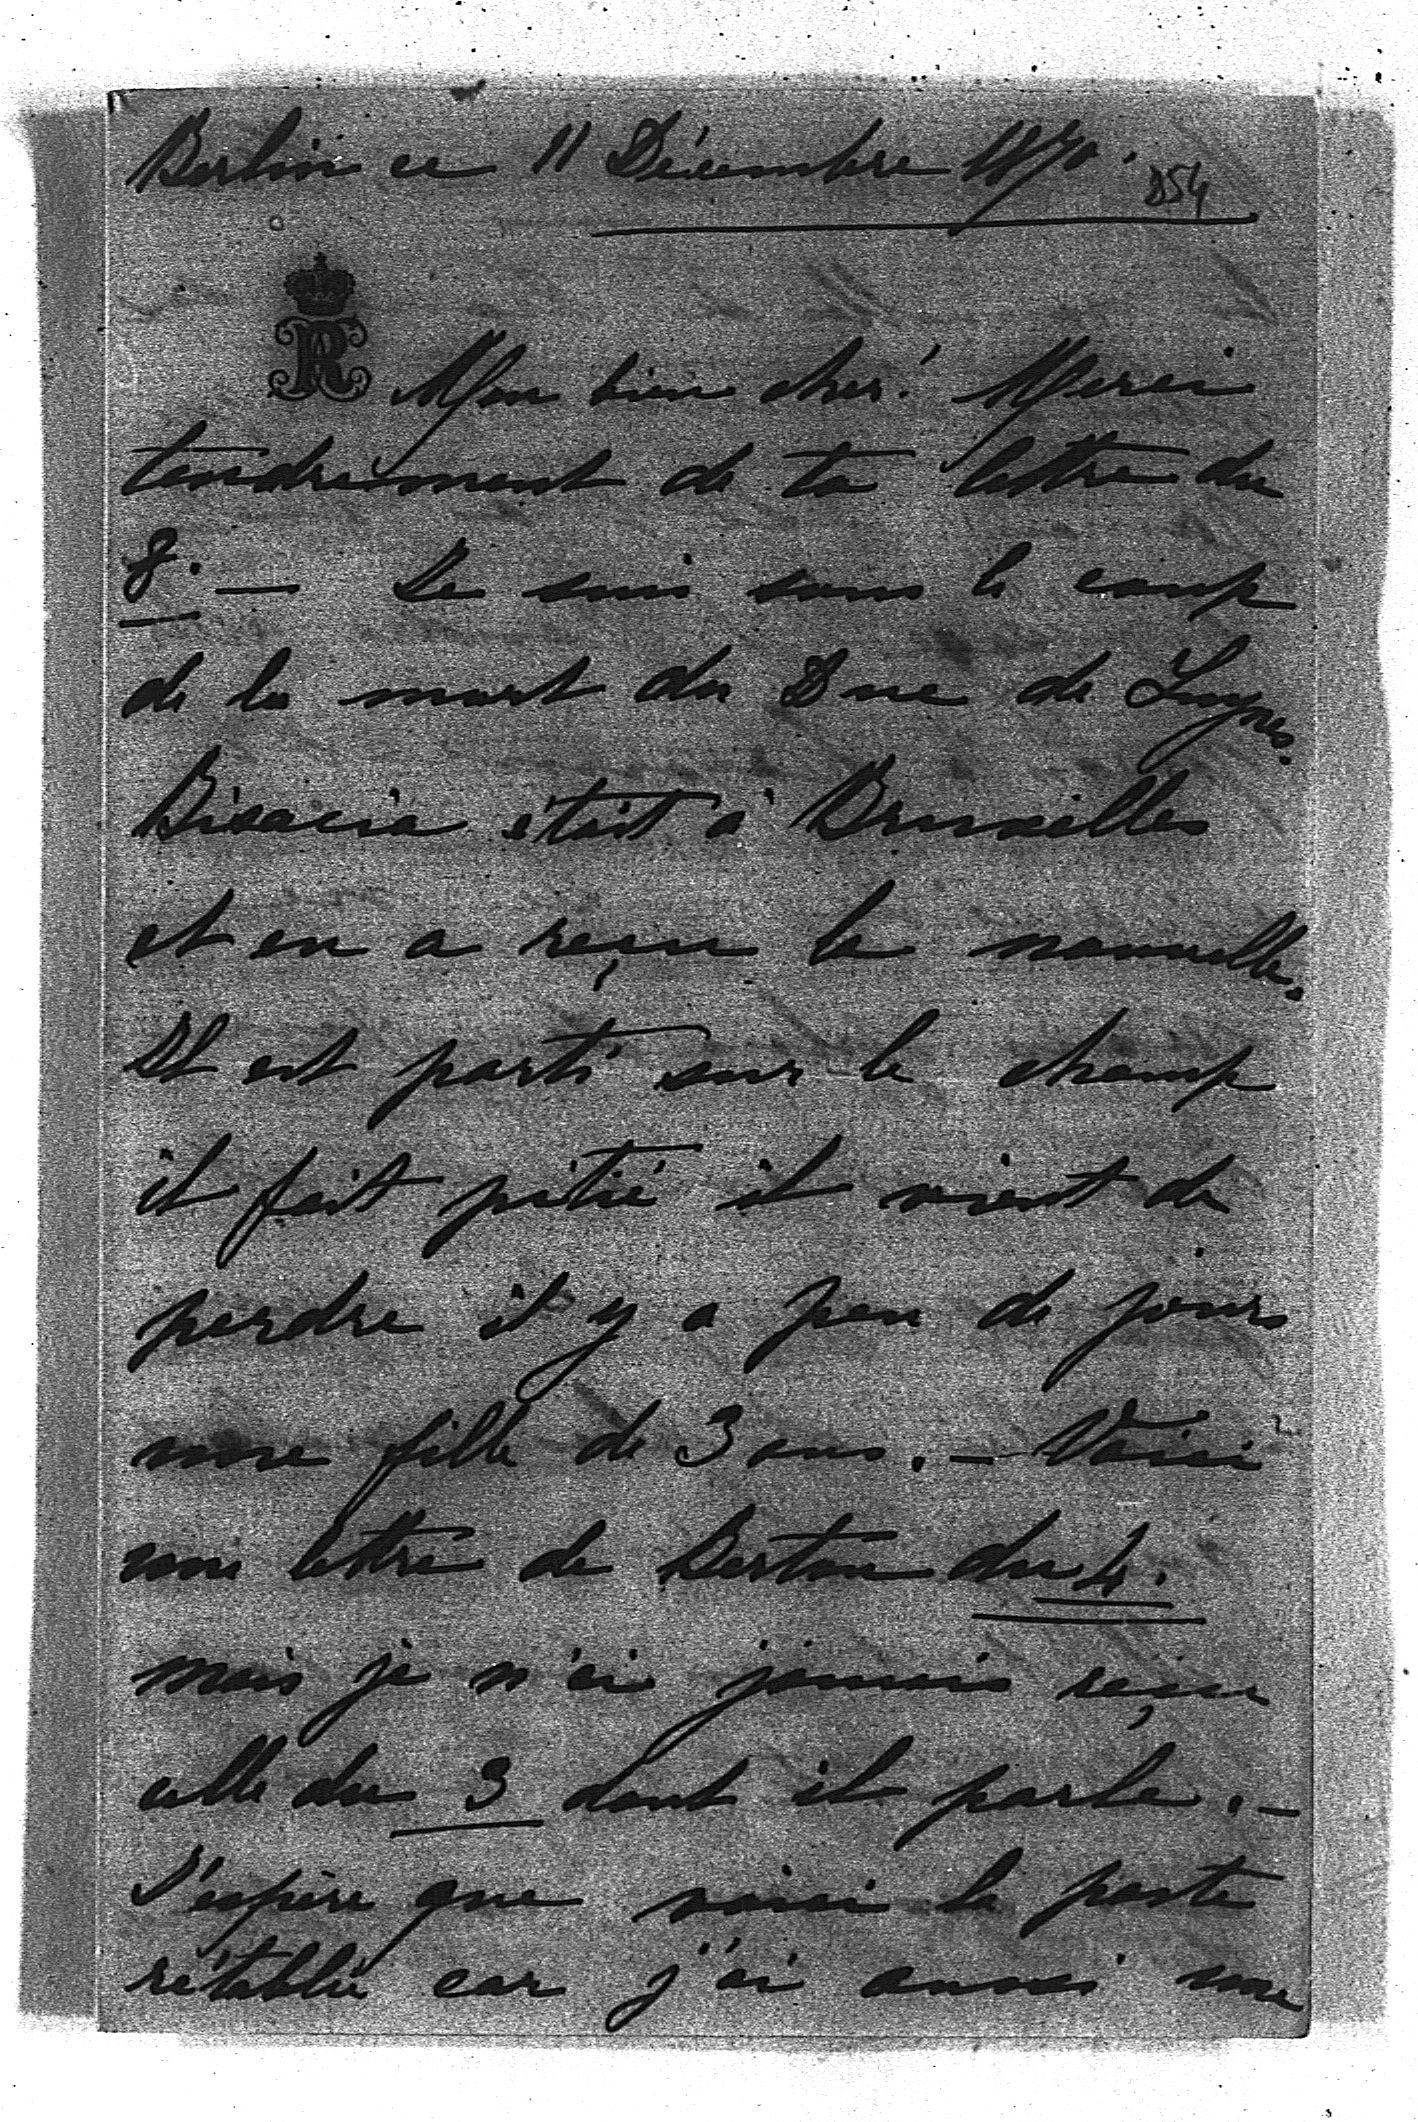 Berlin ce 11 Décembre 1870.
854
R
Mon bien cher! Merci
tendrement de ta lettre du
8. — Je suis sous le coup
de la mort du Duc de Luynes.
Bisaccia était à Bruxelles
et en a reçu la nouvelle.
Il est parti sur le champ
il fait pitié il vient de
perdre il y a peu de jours
une fille de 3 ans. — Voici
une lettre de Bertou du 4.
mais je n'ai jamais reçu
celle du 3 dont il parle. —
J'espère que voici la poste
rétablie car j'ai aussi une